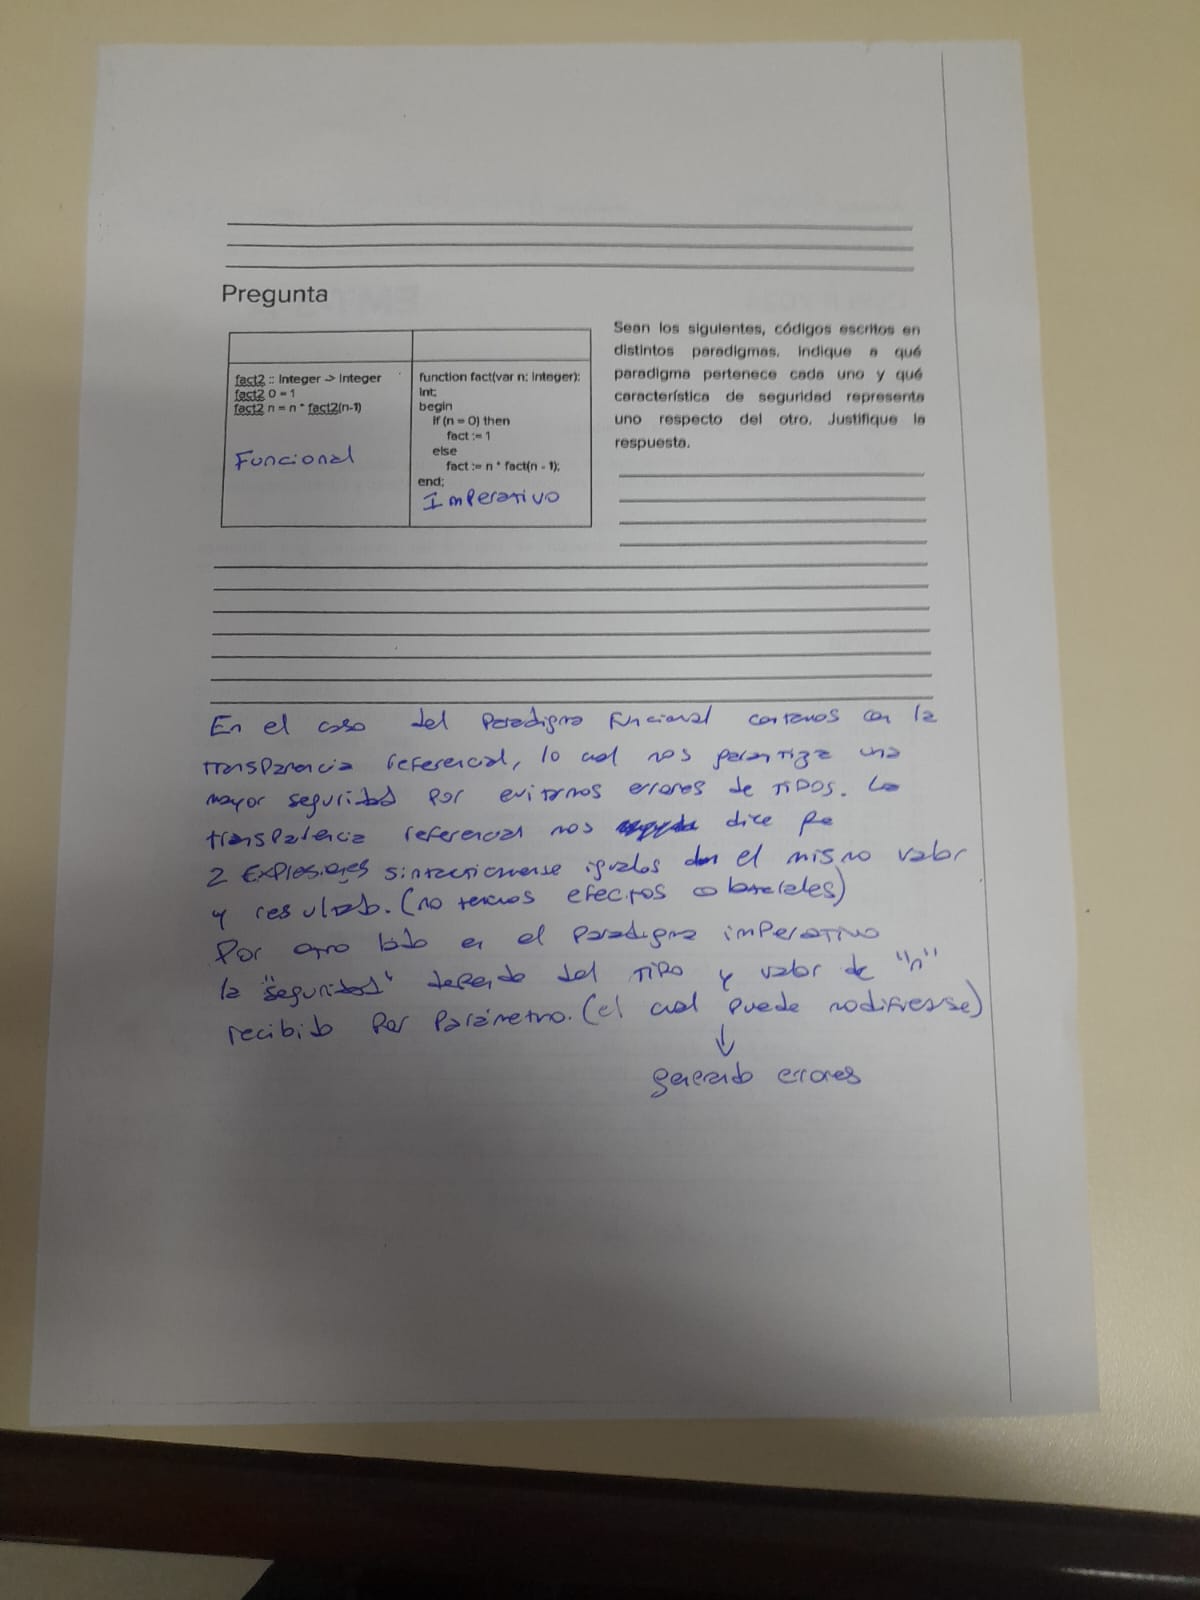 Pregunta
fact2 :: Integer -> Integer
fact2 0 = 1
fact2 n = n * fact2(n-1)
Funcional
function fact(var n: integer):
Int;
begin
if (n = 0) then
fact := 1
else
fact := n * fact(n - 1);
end;
Imperativo
Sean los siguientes, códigos escritos en
distintos paradigmas. Indique a qué
paradigma pertenece cada uno y qué
característica de seguridad representa
uno respecto del otro. Justifique la
respuesta.
En el caso del Paradigma Funcional contamos con la
transparencia referencial, lo cual nos garantiza una
mayor seguridad por evitarnos errores de tipos. La
transparencia referencial nos dice que
2 Expresiones sintacticamente iguales dan el mismo valor
y resultado. (no tenemos efectos colaterales)
Por otro lado en el Paradigma imperativo
la "seguridad" depende del tipo y valor de "n"
recibido por Parámetro. (el cual puede modificarse)
↓
generando errores